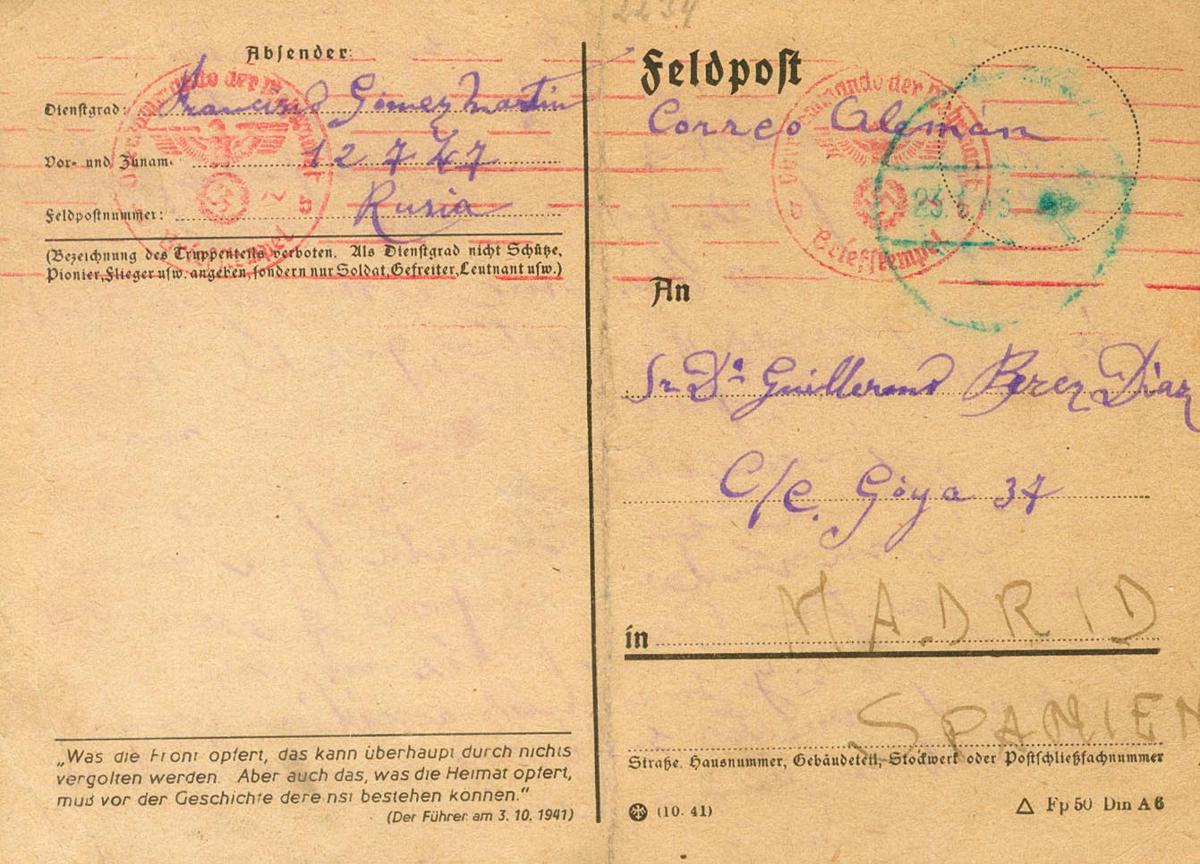 2234
Absender:
Dienstgrad: Francisco Gómez Martin
Vor- und Zunam. 12747
Feldpostnummer: Rusia
(Bezeichnung des Truppenteils verboten. Als Dienstgrad nicht Schütze,
Pionier, Flieger usw. angeben, sondern nur Soldat, Gefreiter, Leutnant usw.)
Oberkommando der Wehrmacht
b
Briefstempel
„Was die Front opfert, das kann überhaupt durch nichts
vergolten werden. Aber auch das, was die Heimat opfert,
muß vor der Geschichte dereinst bestehen können.“
(Der Führer am 3. 10. 1941)
Feldpost
Correo Alemán
Oberkommando der Wehrmacht
Briefstempel
An
Sr. Dn. Guillermo Perez Diaz
C/C. Goya 37
in MADRID
SPANIEN
Straße, Hausnummer, Gebäudeteil, Stockwerk oder Postschließfachnummer
(10. 41)
△ Fp 50 Din A 6